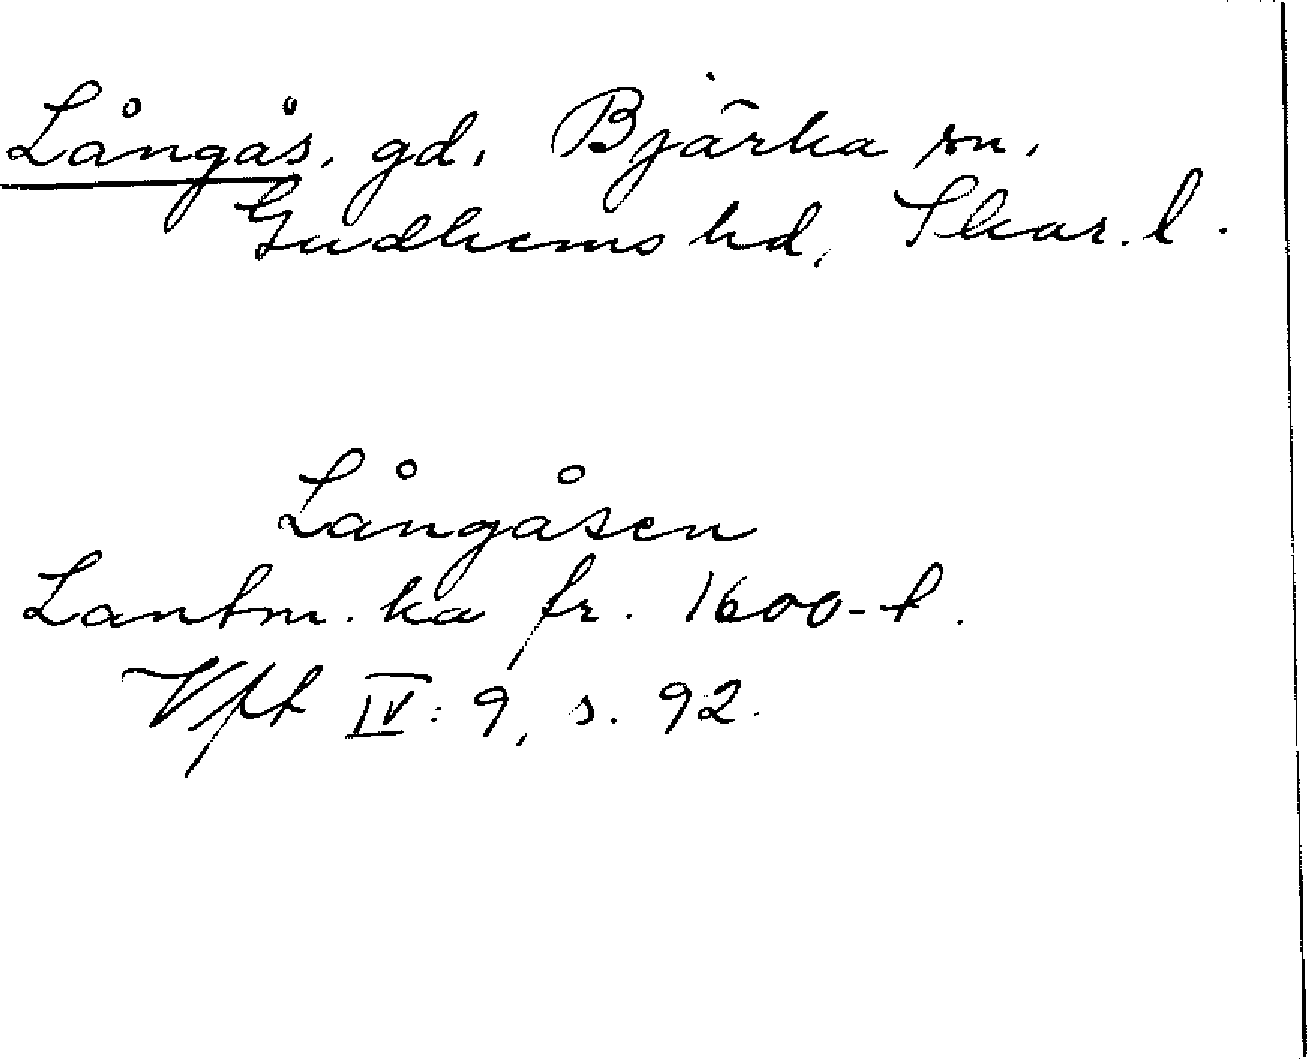 Långås, gd, Bjärka sn,
Gudhems hd, Skar. l.
Långåsen
Lantm. ka fr. 1600-t.
Vft IV: 9, s. 92.